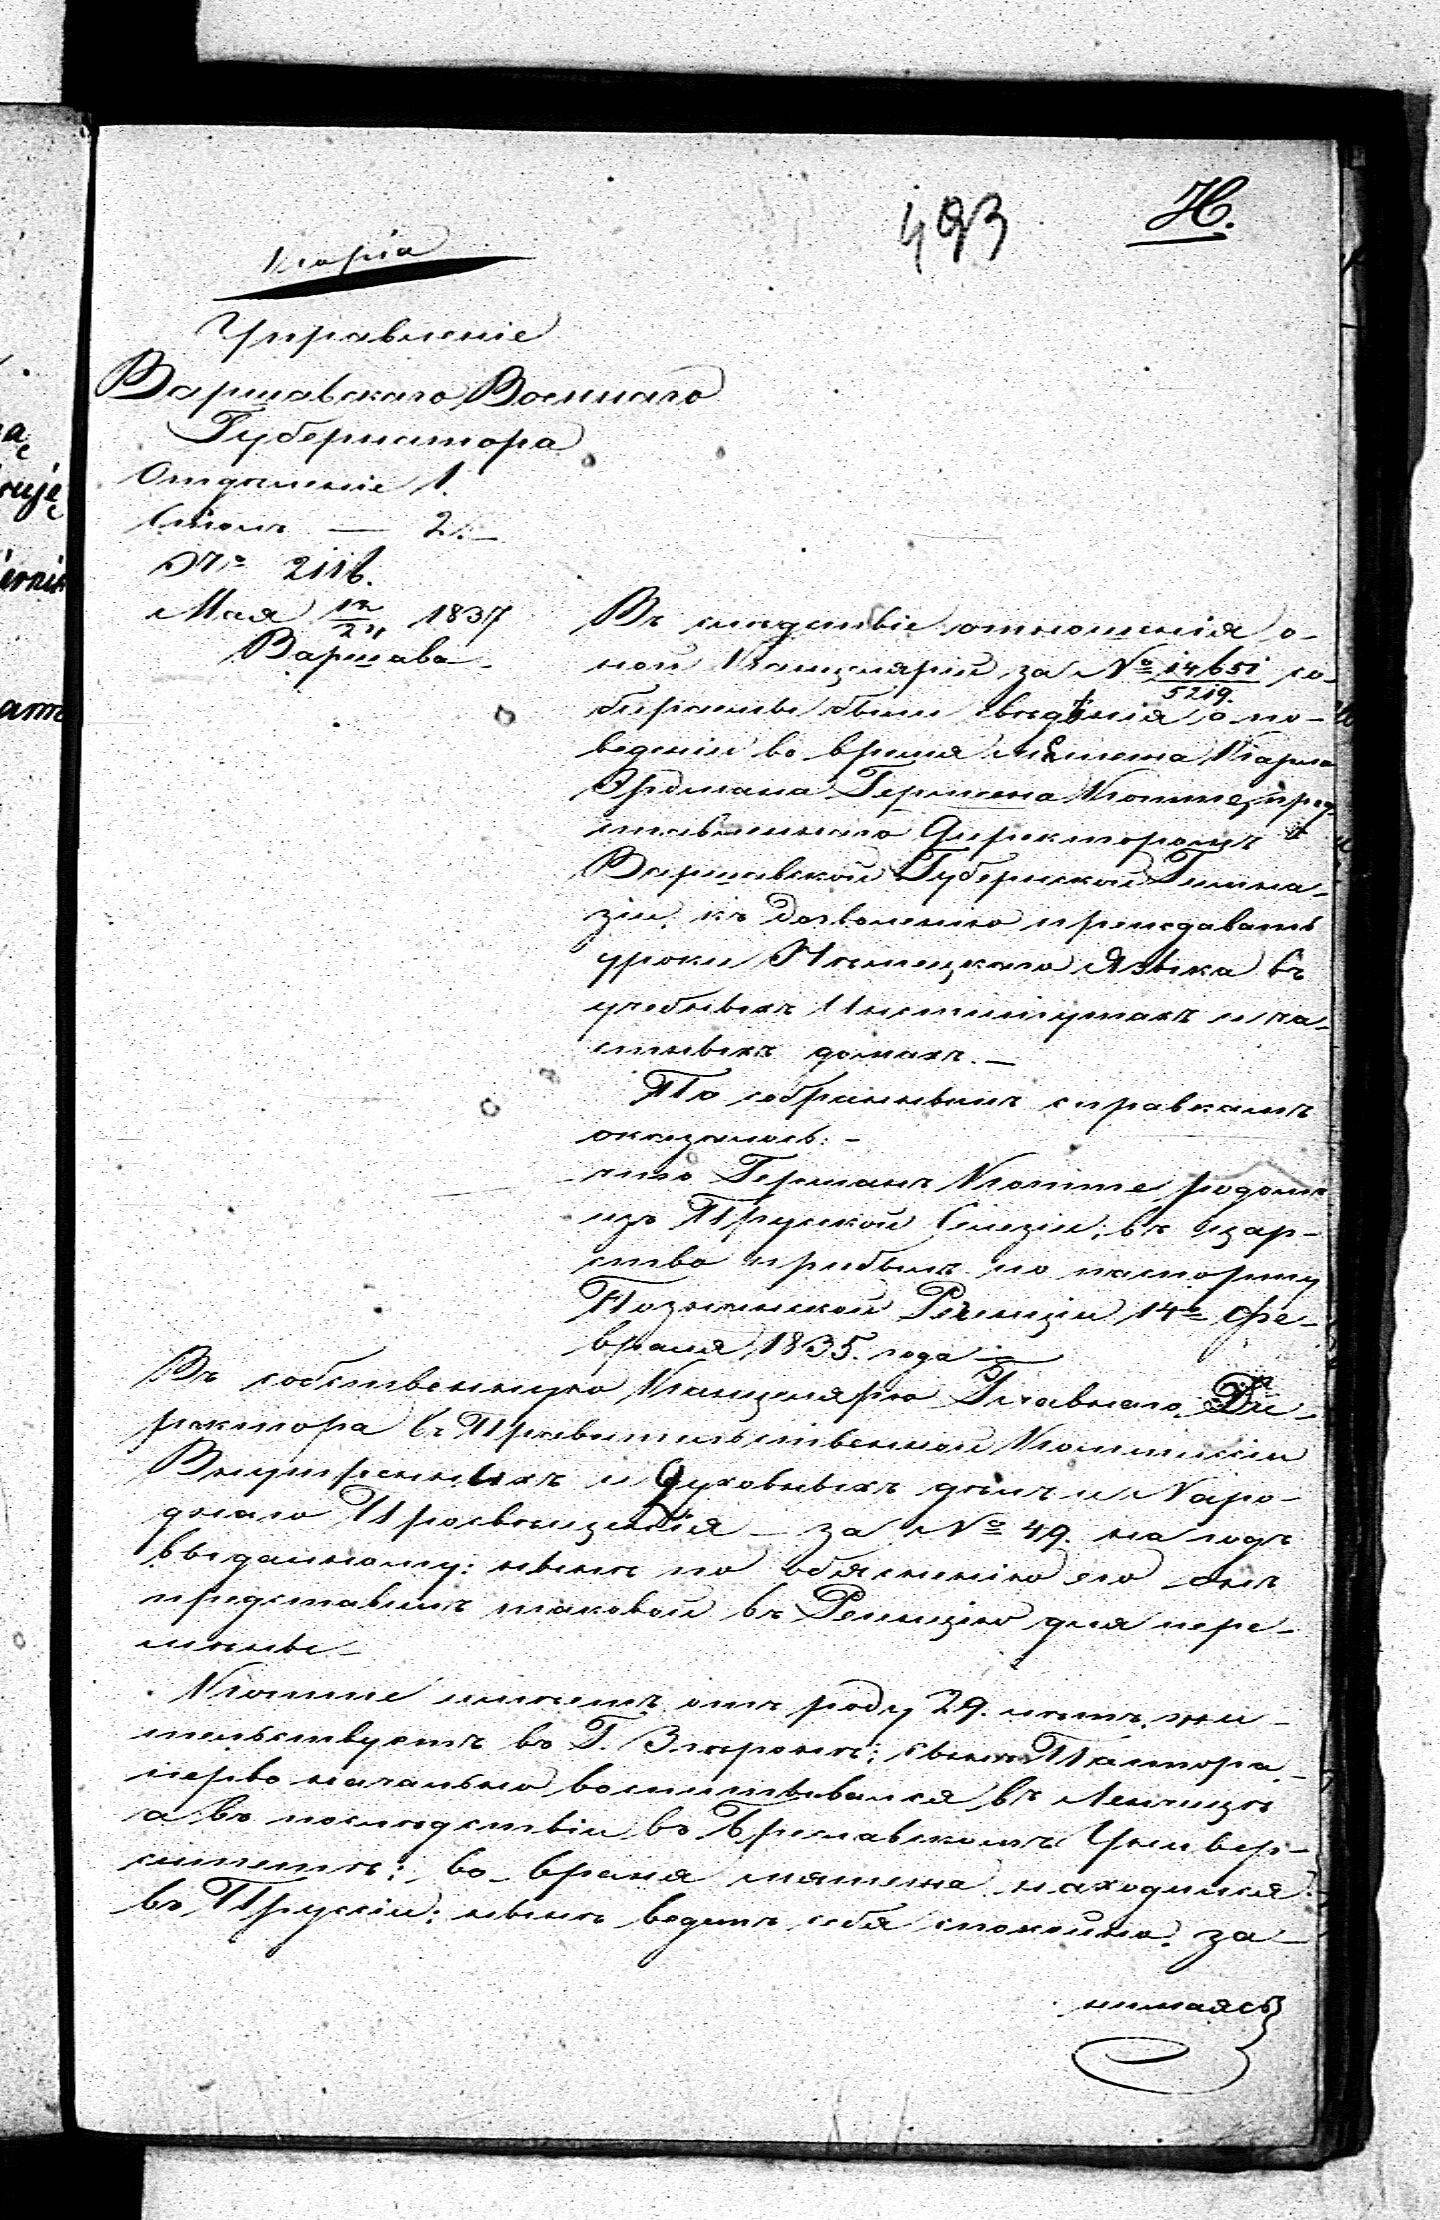 493
Н.
Копія
Управленіе
Варшавскаго Военнаго
Губернатора
Отделеніе 1.
Столъ — 2.—
№ 2116.
Мая 12/24 1837
Варшава.
Въ следствіе отношенія о-
ной Канцеляріи за № 14651/5219. со-
бираемы были сведѣнія о по-
веденіи во время мятежа Карла
Эрдмана Германа Клопше, пред-
ставленнаго Директоромъ
Варшавской Губернской Гимна-
зіи, къ дозволенію преподавать
уроки Немецкаго Языка въ
учебныхъ Институтахъ и ча-
стныхъ домахъ.—
По собраннымъ справкамъ
оказалось:-
что Германъ Клопше родомъ
изъ Пруской Силезіи; въ Цар-
ство прибылъ по паспорту
Познанской Регенціи 14го Фе-
враля 1835. года —
Въ собственную Канцелярію Главнаго Ди-
ректора въ Правительственной Коммисіи
Внутреннихъ и Духовныхъ делъ и Наро-
днаго Просвещенія — за № 49. на годъ
выданному: ныне по объясненію его онъ
представилъ таковой въ Регенцію для пере-
мены —
Клопше имеетъ отъ роду 29. летъ, жи-
тельствуетъ въ Г. сынъ Пастора,
перво начально воспитывался въ
а въ последствіи въ Бреславскомъ Универ-
ситете; во время мятежа находился
въ Пруссіи; ныне ведетъ себя спокойно, за-
нимаясь